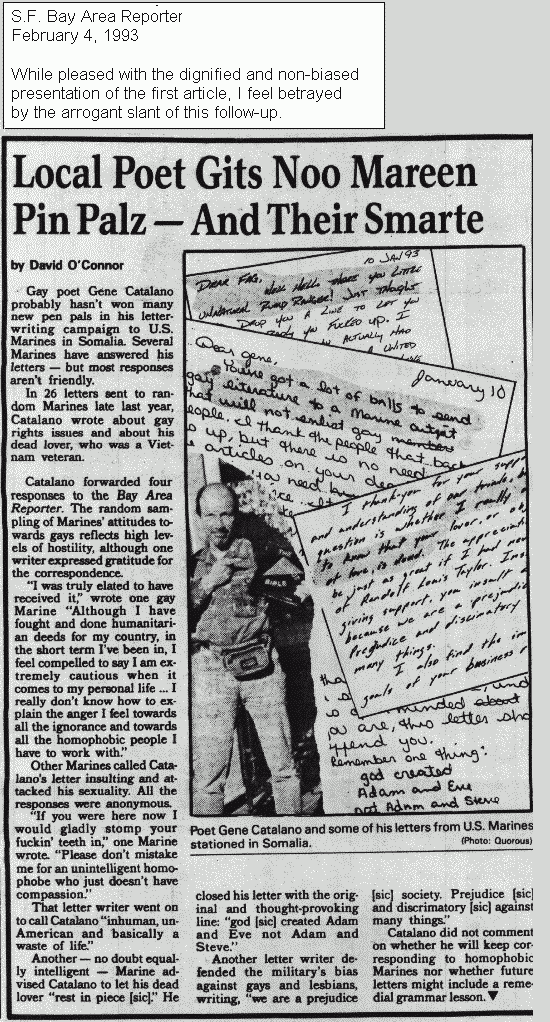 S.F. Bay Area Reporter
February 4, 1993
While pleased with the dignified and non-biased
presentation of the first article, I feel betrayed
by the arrogant slant of this follow-up.
Local Poet Gits Noo Mareen
Pin Palz — And Their Smarte
by David O'Connor
Gay poet Gene Catalano
probably hasn't won many
new pen pals in his letter-
writing campaign to U.S.
Marines in Somalia. Several
Marines have answered his
letters — but most responses
aren't friendly.
In 26 letters sent to ran-
dom Marines late last year,
Catalano wrote about gay
rights issues and about his
dead lover, who was a Viet-
nam veteran.
Catalano forwarded four
responses to the Bay Area
Reporter. The random sam-
pling of Marines' attitudes to-
wards gays reflects high lev-
els of hostility, although one
writer expressed gratitude for
the correspondence.
"I was truly elated to have
received it," wrote one gay
Marine "Although I have
fought and done humanitari-
an deeds for my country, in
the short term I've been in, I
feel compelled to say I am ex-
tremely cautious when it
comes to my personal life ... I
really don't know how to ex-
plain the anger I feel towards
all the ignorance and towards
all the homophobic people I
have to work with."
Other Marines called Cata-
lano's letter insulting and at-
tacked his sexuality. All the
responses were anonymous.
"If you were here now I
would gladly stomp your
fuckin' teeth in," one Marine
wrote. "Please don't mistake
me for an unintelligent homo-
phobe who just doesn't have
compassion."
That letter writer went on
to call Catalano "inhuman, un-
American and basically a
waste of life."
Another — no doubt equal-
ly intelligent — Marine ad-
vised Catalano to let his dead
lover "rest in piece [sic]." He
10 JAN 93
Dear Fag,
Well Hello there you little
Just thought
Drop you a line to let you
you fucked up. I
actually had
a United
January 10
Dear Gene,
You've got a lot of balls to send
gay literature to a Marine
that will not enlist gay members
people. I thank the people that back
up, but there is no need
articles on your dead
you need
I thank-you for your supp
and understanding of our
question is whether I really
to know that your lover, or
of love, is dead. The appreciation
be just as great if I had
of Randolf Louis Taylor. Ins
giving support, you
because we are a prejudice
Prejudice and discrimatory
many things.
I also find the
goals of your business
BIBLE
tha
minded about
you are, this letter sho
ffend you.
Remember one thing:
god created
Adam and Eve
not Adam and Steve
Poet Gene Catalano and some of his letters from U.S. Marines
stationed in Somalia.
(Photo: Quorous)
closed his letter with the orig-
inal and thought-provoking
line: "god [sic] created Adam
and Eve not Adam and
Steve."
Another letter writer de-
fended the military's bias
against gays and lesbians,
writing, "we are a prejudice
[sic] society. Prejudice [sic]
and discrimatory [sic] against
many things."
Catalano did not comment
on whether he will keep cor-
responding to homophobic
Marines nor whether future
letters might include a reme-
dial grammar lesson.▼